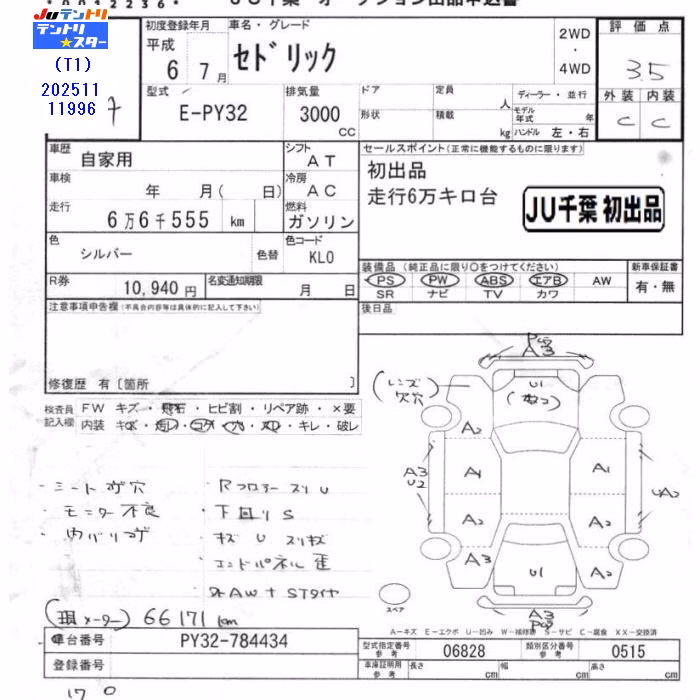 JU千葉 オークション出品申込書
JUテントリ
テントリ★スター
(T1)
202511
11996
初度登録年月
平成
6 7月
車名・グレード
セドリック
2WD
・
4WD
評価点
3.5
外装 内装
C C
型式
E-PY32
排気量
3000
CC
ドア
形状
定員
人
積載
kg
ディーラー・並行
モデル年式 年
ハンドル 左・右
車歴
自家用
シフト
AT
車検
年 月( 日)
冷房
AC
走行
6万6千555 km
燃料
ガソリン
色
シルバー
色替
色コード
KL0
R券
10,940 円
名変通知期限
月 日
セールスポイント(正常に機能するものに限ります)
初出品
走行6万キロ台
JU千葉 初出品
装備品 (純正品に限り○をつけてください)
PS PW ABS エアB AW
SR ナビ TV カワ
新車保証書
有・無
後日品
注意事項申告欄(不具合内容等は具体的に記入して下さい)
修復歴 有〔箇所 〕
検査員
記入欄
FW キズ・飛石・ヒビ割・リペア跡・×要
内装 キズ・汚レ・コゲ・穴・スレ・キレ・破レ
・シートコゲ穴
・モニター不良
・内バリコゲ
・Rフロアースリ U
・下回りS
・キズ U スリキズ
・エンドパネル歪
・社外AW+STタイヤ
(現メーター) 66171km
(レンズ穴穴)
A3
U1
A2
A1
A1
A3
U2
UA2
A2
A2
A3
A2
U1
A3
スペア
A－キズ E－エクボ U－凹み W－補修跡 S－サビ C－腐食 XX－交換済
車台番号
PY32-784434
登録番号
型式指定番号
参考
06828
類別区分番号
参考
0515
車庫証明用
参考
長さ
cm
幅
cm
高さ
cm